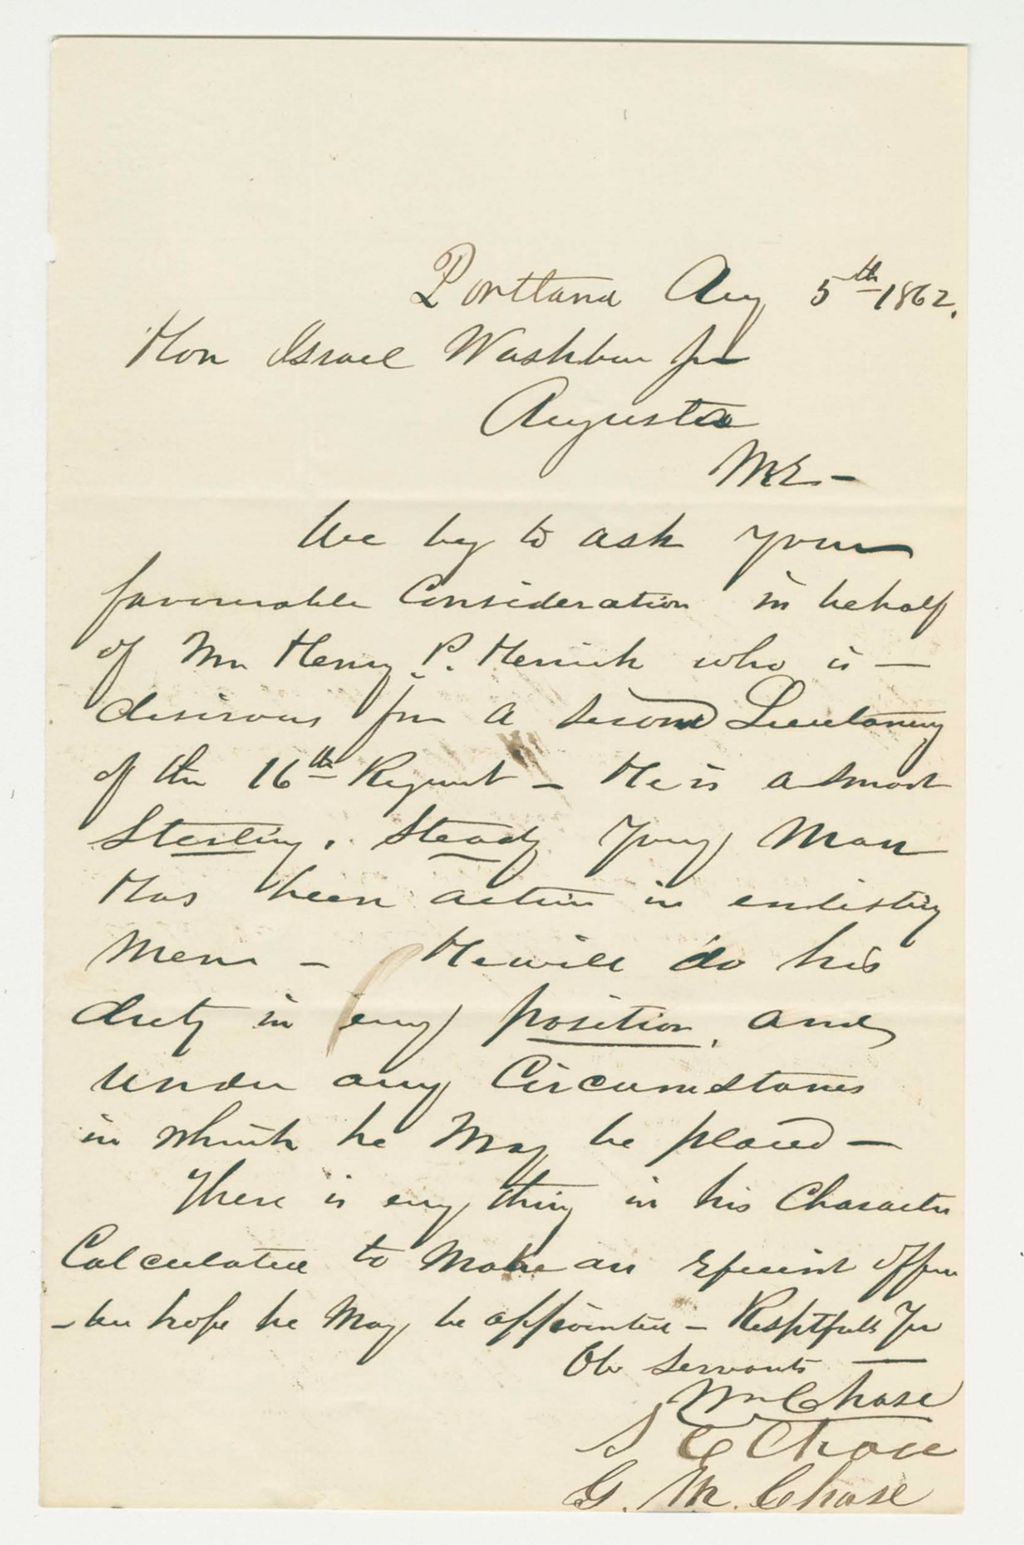 Portland Aug 5th 1862.
Hon Israel Washburn Jr
Augusta
ME -
We beg to ask your
favourable Consideration in behalf
of Mr Henry P. Herrick who is -
desirous for a Second Lieutenancy
of the 16th Regiment - He is a smart
Sterling, Steady Young Man
Has been active in enlisting
Men - He will do his
duty in any position, and
under any Circumstances
in which he May be placed -
There is every thing in his Character
Calculated to Make an efficient officer
- We hope he May be appointed - Respctfully Yr
Ob Servants -
Wm Chase
S C Chase
G. M. Chase